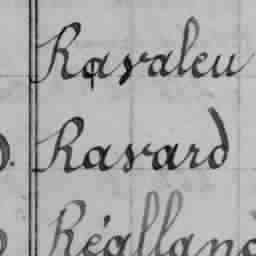 Ravaleu
Ravard
Réalland